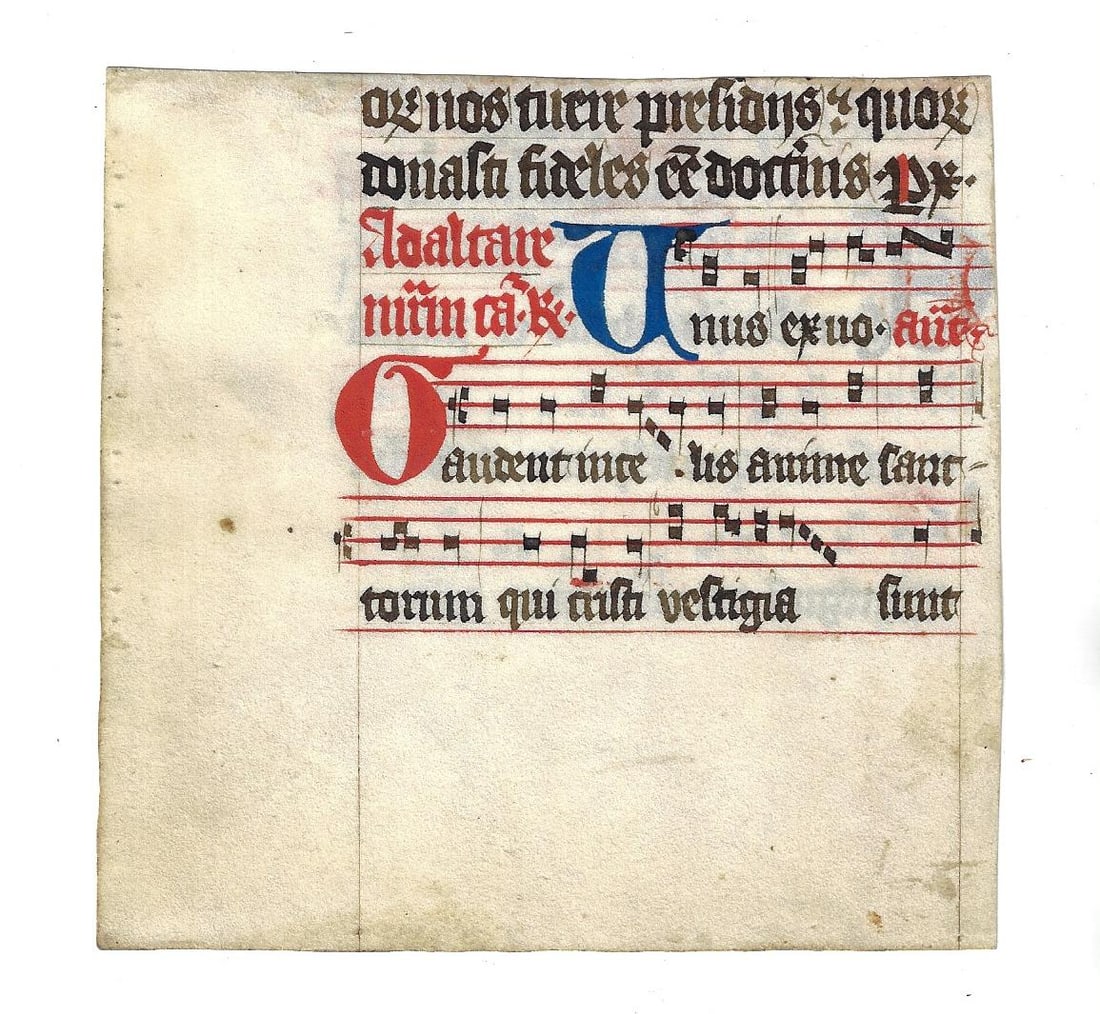 oꝝ nos tuere presidijs ⁊ quoꝝ
donasti fideles ee͞ doctrinis · Px̄ ·
Ad altare
nr̄m in ca · R ·
Unus ex uo · an̄t
Gaudent in celis anime sanc-
torum qui cristi vestigia sunt